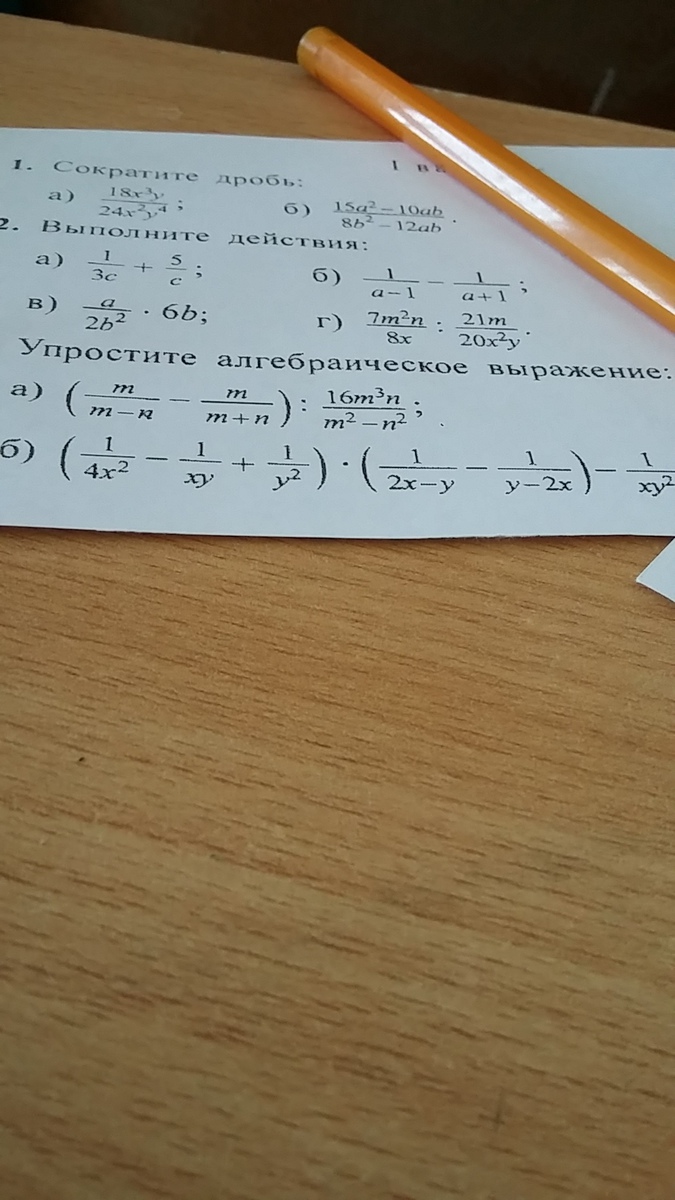 1. Сократите дробь:
а) \frac{18x^3y}{24x^2y^4}; б) \frac{15a^2-10ab}{8b^2-12ab}.
2. Выполните действия:
а) \frac{1}{3c} + \frac{5}{c}; б) \frac{1}{a-1} - \frac{1}{a+1};
в) \frac{a}{2b^2} · 6b; г) \frac{7m^2n}{8x} : \frac{21m}{20x^2y}.
Упростите алгебраическое выражение:
а) (\frac{m}{m-n} - \frac{m}{m+n}) : \frac{16m^3n}{m^2-n^2};
б) (\frac{1}{4x^2} - \frac{1}{xy} + \frac{1}{y^2}) · (\frac{1}{2x-y} - \frac{1}{y-2x}) - \frac{1}{xy^2}